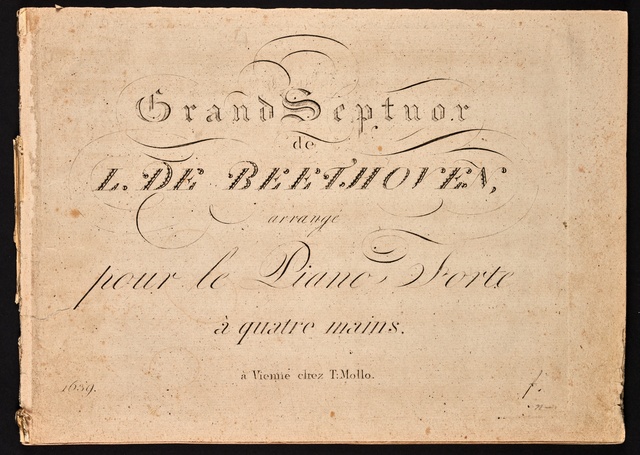 Grand Septuor
de
L. DE BEETHOVEN,
arrangé
pour le Piano Forte
à quatre mains.
à Vienne chez T. Mollo.
1659.
f.